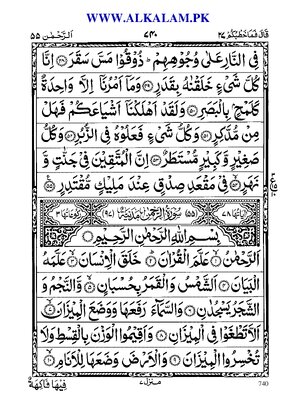 WWW.ALKALAM.PK
قَالَ فَمَا خَطْبُكُمْ ٢٧
٧٤٠
اَلرَّحْمٰن ٥٥
فِی النَّارِ عَلٰی وُجُوْهِهِمْ ؕ ذُوْقُوْا مَسَّ سَقَرَ ﴿۴۸﴾ اِنَّا
كُلَّ شَیْءٍ خَلَقْنٰهُ بِقَدَرٍ ﴿۴۹﴾ وَمَاۤ اَمْرُنَاۤ اِلَّا وَاحِدَةٌ
كَلَمْحٍۭ بِالْبَصَرِ ﴿۵۰﴾ وَلَقَدْ اَهْلَكْنَاۤ اَشْیَاعَكُمْ فَهَلْ
مِنْ مُّدَّكِرٍ ﴿۵۱﴾ وَكُلُّ شَیْءٍ فَعَلُوْهُ فِی الزُّبُرِ ﴿۵۲﴾ وَكُلُّ
صَغِیْرٍ وَّكَبِیْرٍ مُّسْتَطَرٌ ﴿۵۳﴾ اِنَّ الْمُتَّقِیْنَ فِیْ جَنّٰتٍ وَّ
نَهَرٍ ﴿۵۴﴾ فِیْ مَقْعَدِ صِدْقٍ عِنْدَ مَلِیْكٍ مُّقْتَدِرٍ ﴿۵۵﴾
اٰیَاتُهَا ٧٨ (٥٥) سُوْرَةُ الرَّحْمٰنِ مَدَنِیَّةٌ (٩٧) رُكُوْعَاتُهَا ٣
بِسْمِ اللّٰهِ الرَّحْمٰنِ الرَّحِیْمِ
اَلرَّحْمٰنُ ﴿۱﴾ عَلَّمَ الْقُرْاٰنَ ﴿۲﴾ خَلَقَ الْاِنْسَانَ ﴿۳﴾ عَلَّمَهُ
الْبَیَانَ ﴿۴﴾ اَلشَّمْسُ وَالْقَمَرُ بِحُسْبَانٍ ﴿۵﴾ وَّالنَّجْمُ وَ
الشَّجَرُ یَسْجُدٰنِ ﴿۶﴾ وَالسَّمَآءَ رَفَعَهَا وَوَضَعَ الْمِیْزَانَ ﴿۷﴾
اَلَّا تَطْغَوْا فِی الْمِیْزَانِ ﴿۸﴾ وَاَقِیْمُوا الْوَزْنَ بِالْقِسْطِ وَلَا
تُخْسِرُوا الْمِیْزَانَ ﴿۹﴾ وَالْاَرْضَ وَضَعَهَا لِلْاَنَامِ ﴿۱۰﴾
فِیْهَا فَاكِهَةٌ
منزل ٧
740